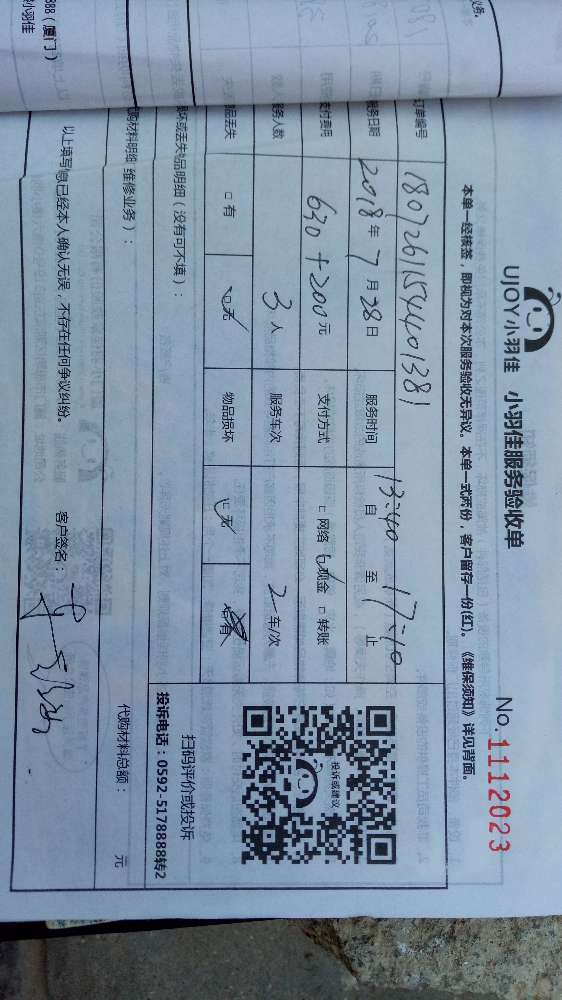 务.
888 ( 厦门 )
小羽佳
UJOY小羽佳 小羽佳服务验收单
No. 1112023
本单一经核签，即视为对本次服务验收无异议。本单一式两份，客户留存一份(红)。《维保须知》详见背面。
订单编号 1807261154401381
服务日期 2018年7月28日 服务时间 自13:40 至17:10止
支付费用 630+200元 支付方式 □网络 □现金 □转账
服务人数 3人 服务车次 2车/次
物品丢失 □有 □无 物品损坏 □无 □有
损坏或丢失物品明细 ( 没有可不填 ) ：
扫码评价或投诉
投诉或建议
投诉电话：0592-5178888转2
代购材料明细 维修业务 ) ：
代购材料总额： 元
以上填写信息已经本人确认无误，不存在任何争议纠纷。
客户签名：